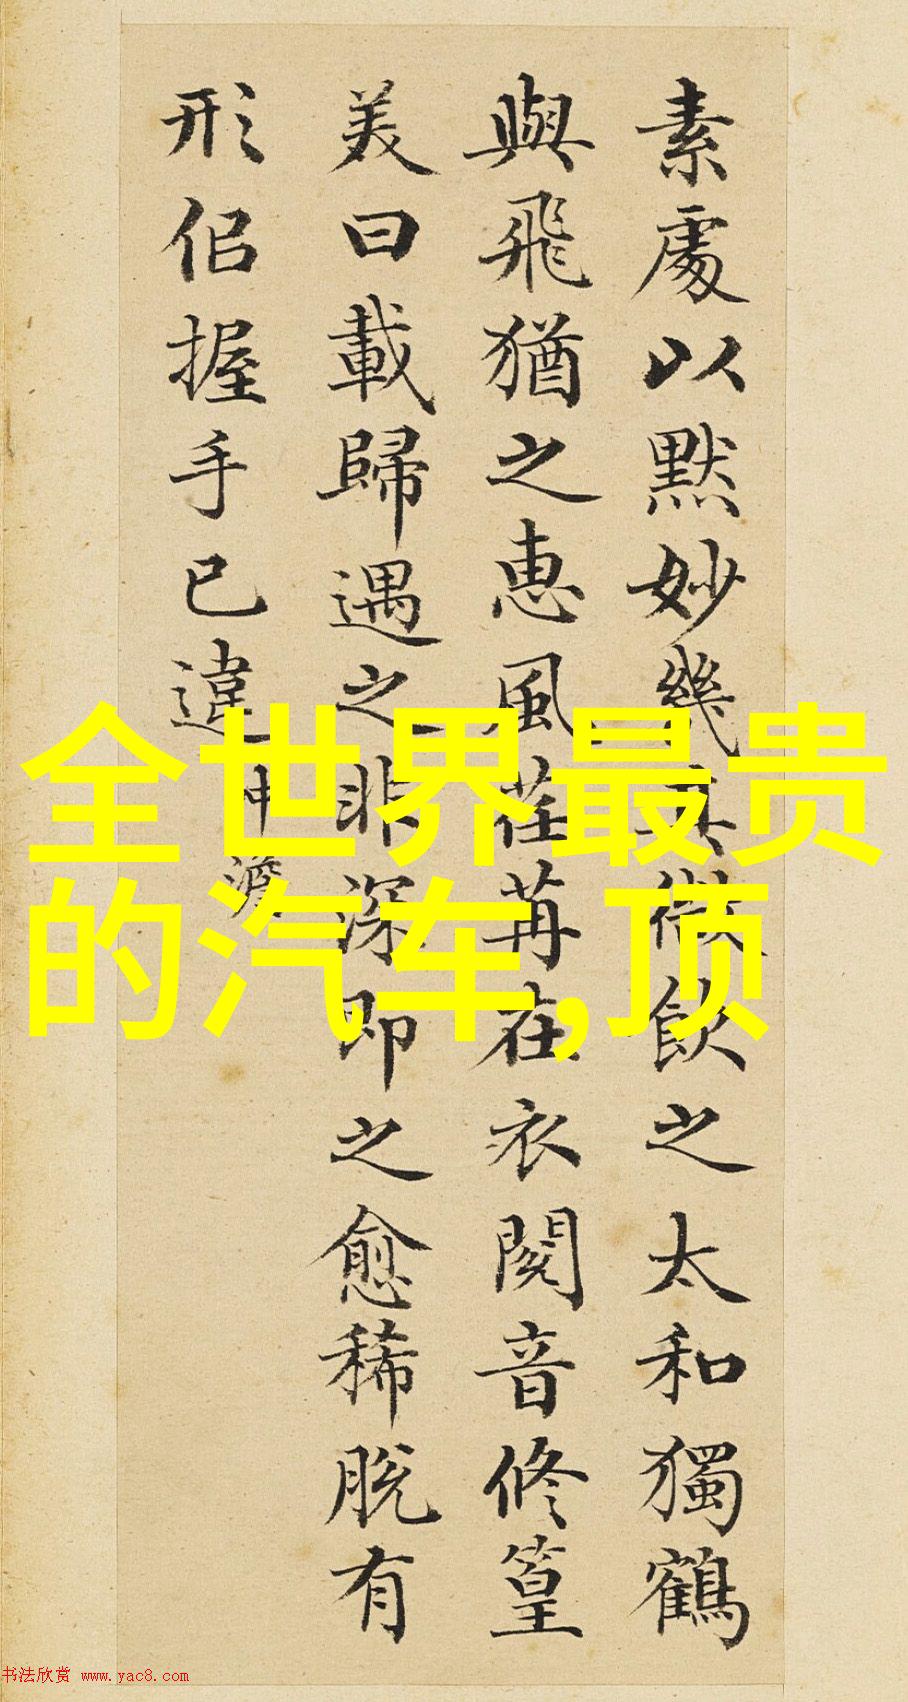 素處以默妙幾其微飲之太和獨鶴
與飛猶之惠風荏苒在衣閱音修篁
美曰載歸遇之非深即之愈稀脫有
形佀握手已違
全世界最贵
的汽车,顶
书法欣赏 www.yac8.com